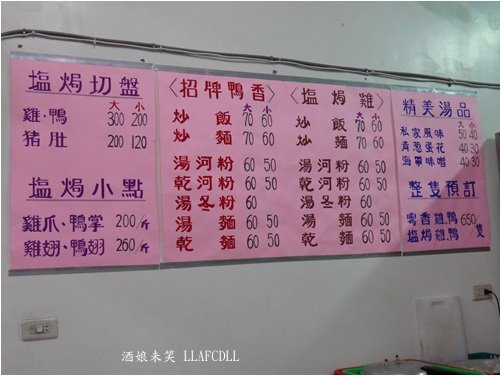 塩焗切盤
大 小
雞、鴨 300 200
猪肚 200 120
塩焗小點
雞爪、鴨掌 200/斤
雞翅、鴨翅 260/斤
〈招牌鴨香〉
大 小
炒飯 70 60
炒麵 70 60
湯河粉 60 50
乾河粉 60 50
湯冬粉 60
湯麵 60 50
乾麵 60 50
〈塩焗雞〉
大 小
炒飯 70 60
炒麵 70 60
湯河粉 60 50
乾河粉 60 50
湯冬粉 60
湯麵 60 50
乾麵 60 50
精美湯品
大 小
私家風味 50 40
青葱蛋花 40 30
海帶味噌 40 30
整隻預訂
粵香雞、鴨 650/隻
塩焗雞、鴨
酒娘未笑 LLAFCDLL